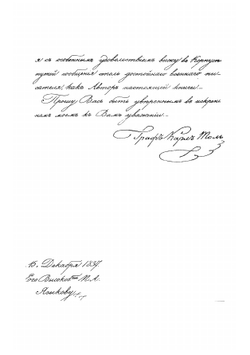 я съ особеннымъ удовольствиемъ вижу въ Корпусѣ
путей сообщения столь достойнаго военнаго пи-
сателя, какъ Авторъ настоящей книги.
Прошу Васъ быть увѣреннымъ въ искрен-
немъ моемъ къ Вамъ уважении.
Графъ Карлъ Толь
15. Декабря 1837.
Его Высокоб. М.А.
Языкову